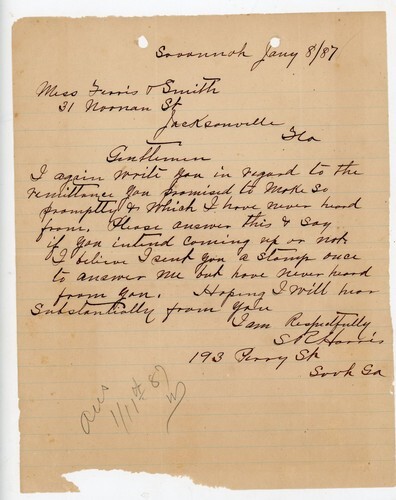 Savannah Jany 8/87
Mess Ferris & Smith
31 Noonan St
Jacksonville
Fla
Gentlemen
I again write you in regard to the
remittance you promised to make so
promptly & which I have never heard
from. Please answer this & say
if you intend coming up or not.
I believe I sent you a stamp once
to answer me but have never heard
from you. Hoping I will hear
substantially from you
I am Respectfully
S R Harris
193 Perry St
Savh Ga
ans
1/11th 87